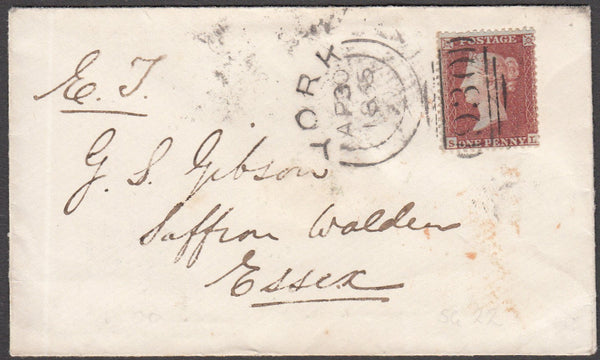 E. T.
G. S. Gibson
Saffron Walden
Essex
YORK
AP 30
1856
930
POSTAGE
S ONE PENNY L
SG 22